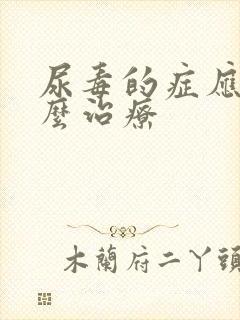 尿毒的症應
麼治療
木蘭府二丫頭